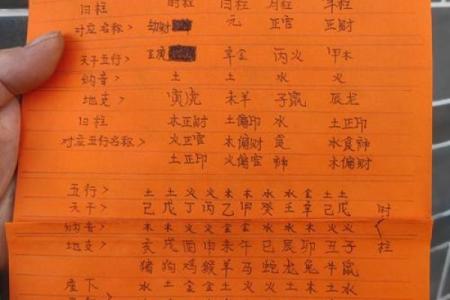 日柱 时柱 日柱 月柱 年柱
对应名称> 劫财 元 正官 正财
天干五行> 金庚 辛金 丙火 甲木
纳音> 土 土 水 火
地支> 寅虎 未羊 子鼠 辰龙
日柱 木正财 土偏印 水 土正印
对应五行名称> 火正官 木偏财 食 水食神
土正印 火偏官 神 木偏财
五行> 土 土 火 火 木 木 水 水 金 金 土 土
天干> 己 戊 丁 丙 乙 甲 癸 壬 辛 己 戊 时
纳音> 木 木 火 火 土 土 水 金 金 火 火
地支> 亥 戌 酉 申 未 午 巳 辰 卯 丑 子 柱
猪 狗 鸡 猴 羊 马 蛇 龙 兔 牛 鼠
座下 水 土 金 金 土 火 火 土 木 土 水